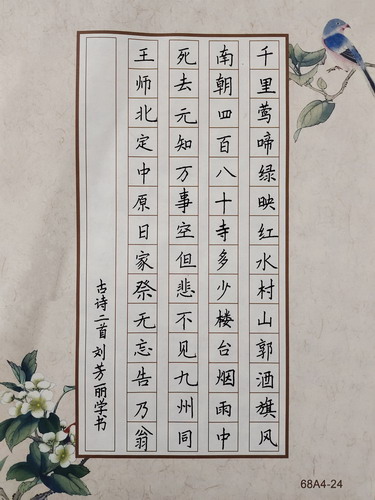 千里莺啼绿映红水村山郭酒旗风
南朝四百八十寺多少楼台烟雨中
死去元知万事空但悲不见九州同
王师北定中原日家祭无忘告乃翁
古诗二首刘芳丽学书
68A4-24